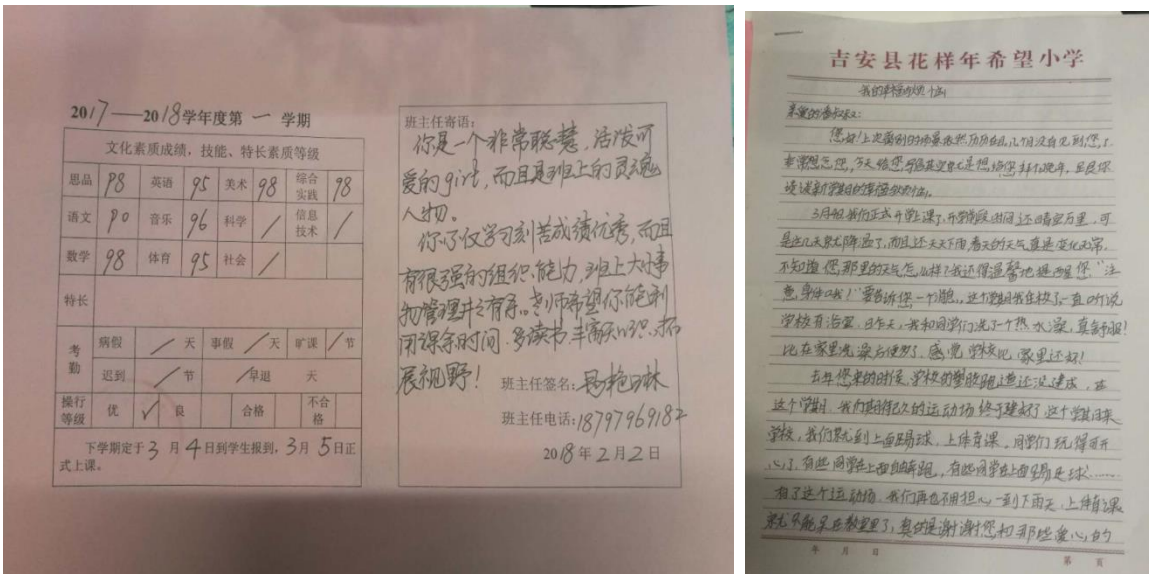 2017——2018学年度第一学期
文化素质成绩,技能、特长素质等级
思品 98 英语 95 美术 98 综合实践 98
语文 90 音乐 96 科学 / 信息技术 /
数学 98 体育 95 社会 /
特长
考勤 病假 / 天 事假 / 天 旷课 / 节
迟到 / 节 / 早退 天
操行等级 优 ✓ 良 合格 不合格
下学期定于3月4日到学生报到,3月5日正
式上课。
班主任寄语:
你是一个非常聪慧,活泼可
爱的girl,而且是班上的灵魂
人物。
你不仅学习刻苦成绩优秀,而且
有很强的组织能力,班上大小事
物管理井井有条。老师希望你能利
用课余时间,多读书,丰富知识,拓
展视野!
班主任签名:
班主任电话:18797969182
2018年2月2日
吉安县花样年希望小学
我的幸福的烦恼
亲爱的叔叔:
您好!上次离别的场景依然历历在目,几个月没有见到您,
非常想念您,今天给您写信其实就是想给您拜个晚年,且是你
谈谈新学期的幸福的烦恼。
3月份我们正式开学上课了,开学前段时间还晴空万里,可
是这几天就大降温了,而且还天天下雨,春天的天气真是变化无常,
不知道您那里的天气怎么样?我还得温馨地提醒您,"注
意身体哦!"要告诉您一个消息,这个学期我在校了,一直听说
学校有浴室,昨天,我和同学们洗了一个热水澡,真舒服!
比在家里洗澡方便多了,感觉学校比家里还好!
去年您来的时候,学校的塑胶跑道还没建成,在
这个学期,我们期待已久的运动场终于建好了,这个学期来
学校,我们就到上面踢球,上体育课,同学们玩得可开
心了,有些同学在上面自由奔跑,有些同学在上面踢足球……
有了这个运动场,我们再也不用担心一到下雨天,上体育课
就只能呆在教室里了,真的是谢谢您和那些爱心的
年 月 日
第 页